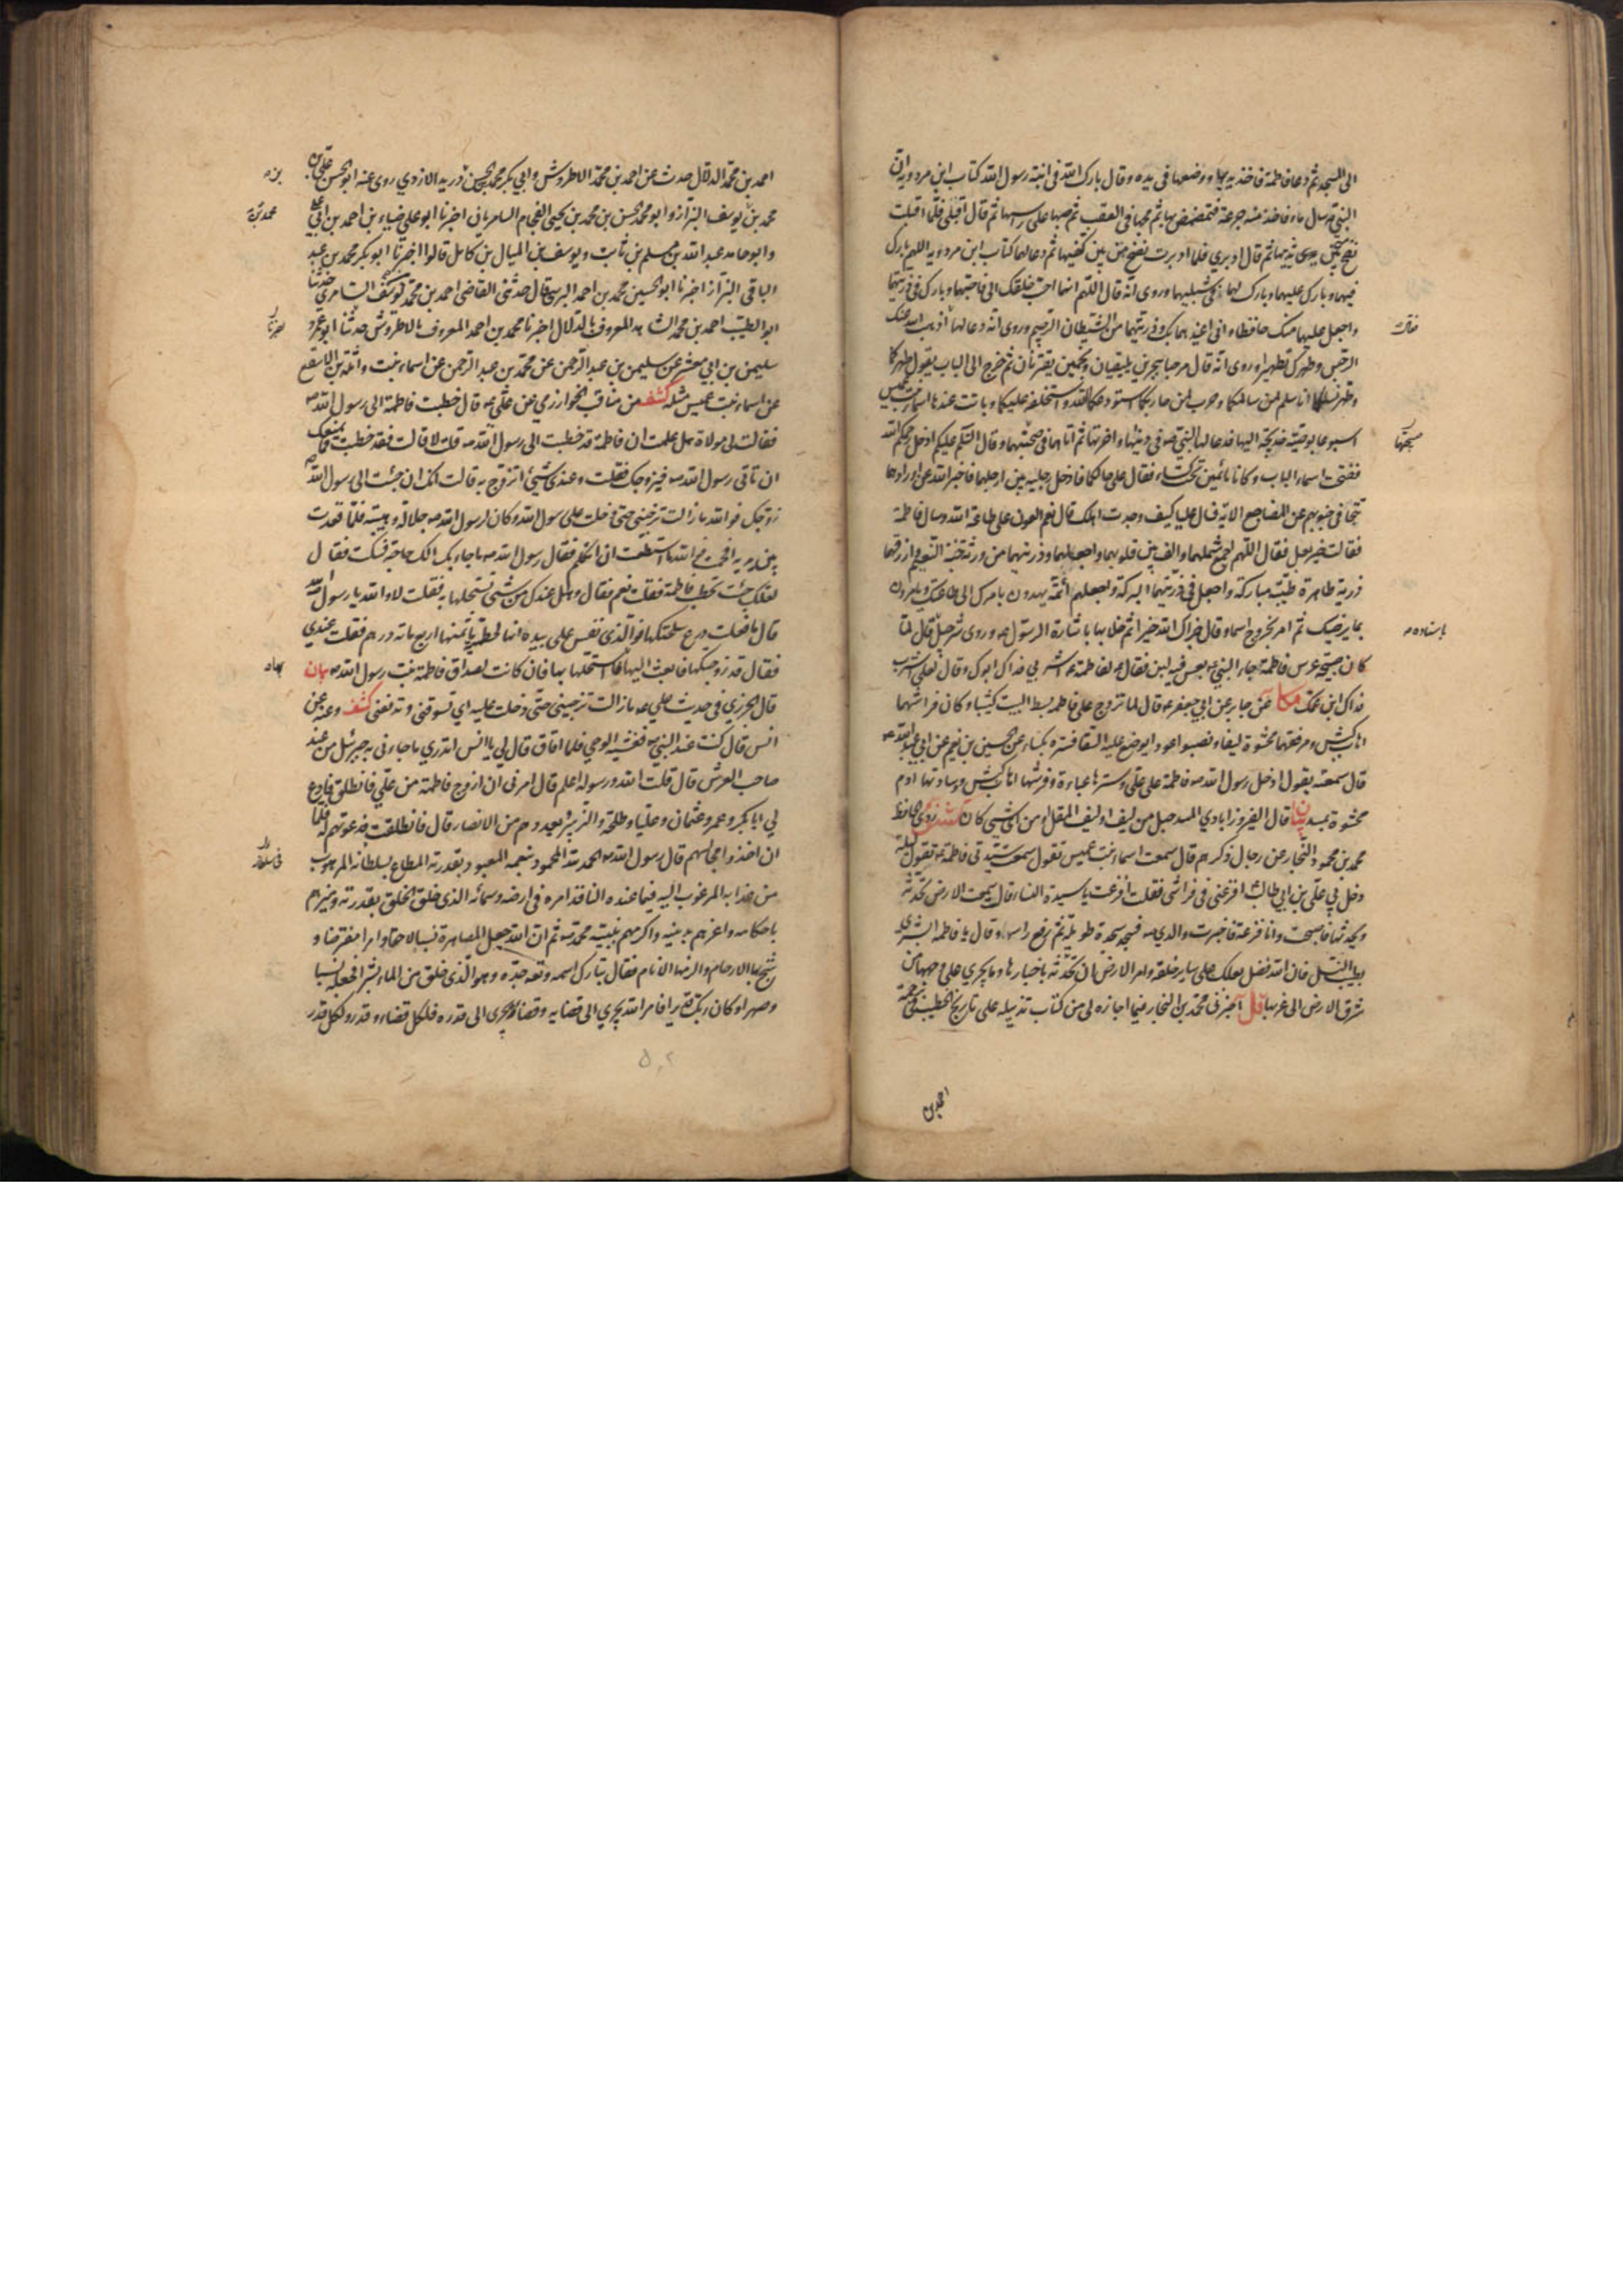 الى المسجد ثم دعا فاطمة فاخذ يديها ووضعها في يده وقال بارك الله في ابنة رسول الله كتاب ابن مردويه ان
النبي سال ماء فاخذ منه جرعة فتمضمض بها ثم مجها في القعب ثم صبها على راسها ثم قال اقبلي فلما اقبلت
نضح من بين ثدييها ثم قال ادبري فلما ادبرت نضح من بين كتفيها ثم دعا لهما كتاب ابن مردويه اللهم بارك
فيهما وبارك عليهما وبارك لهما في شبليهما وروي انه قال اللهم انهما احب خلقك الي فاحبهما وبارك في ذريتهما
واجعل عليهما منك حافظا واني اعيذهما بك وذريتهما من الشيطان الرجيم وروي انه دعا لها اذهب الله عنك
الرجس وطهرك تطهيرا وروي انه قال مرحبا ببحرين يلتقيان ونجمين يقترنان ثم خرج الى الباب يقول طهركما
وطهر نسلكما انا سلم لمن سالمكما وحرب لمن حاربكما استودعكما الله واستخلفه عليكما وباتت عندها اسماء بنت عميس
اسبوعا بوصية خديجة اليها فدعا لها النبي في دنيها واخرتها ثم اتاهما في صبيحتهما وقال السلم عليكم ادخل رحمكم الله
ففتحت اسماء الباب وكانا نائمين تحت كساء فقال على حالكما فادخل رجليه بين ارجلهما فاخبر الله عن اورادهما
تتجافى جنوبهم عن المضاجع الاية فسال عليا كيف وجدت اهلك قال نعم العون على طاعة الله وسال فاطمة
فقالت خير بعل فقال اللهم اجمع شملهما والف بين قلوبهما واجعلهما وذريتهما من ورثة جنة النعيم وارزقهما
ذرية طاهرة طيبة مباركة واجعل في ذريتهما البركة واجعلهم ائمة يهدون بامرك الى طاعتك ويامرون
بما يرضيك ثم امر بخروج اسماء وقال جزاك الله خيرا ثم خلا بها باشارة الرسول وروى شرحبيل قال لما
كان صبيحة عرس فاطمة جاء النبي بعس فيه لبن فقال لفاطمة اشربي فداك ابوك وقال لعلي اشرب
فداك ابن عمك مكا عن جابر عن ابي جعفر قال لما تزوج علي فاطمة بسط البيت كثيبا وكان فراشهما
اهاب كبش ومرفقتهما محشوة ليفا ونصبوا عودا يوضع عليه السقا فستره بكساء عن الحسين بن نعيم عن ابي عبد الله
قال سمعته يقول ادخل رسول الله فاطمة على علي وسترها عباءة وفرشها اهاب كبش وسادتها ادم
محشوة بمسد بيان قال الفيروزابادي المسد حبل من ليف او ليف المقل او من اي شيء كان كشف روى الحافظ
محمد بن محمود النجار عن رجال ذكرهم قال سمعت اسماء بنت عميس تقول سمعت سيدتي فاطمة تقول ليلة
دخل بي علي بن ابي طالب افزعني في فراشي فقلت افزعت يا سيدة النساء قال سمعت الارض تحدثه
ويحدثها فاصبحت وانا فزعة فاخبرت والدي فسجد سجدة طويلة ثم رفع راسه وقال يا فاطمة ابشري
بطيب النسل فان الله فضل بعلك على ساير خلقه وامر الارض ان تحدثه باخبارها وما يجري على وجهها من
شرق الارض الى غربها قل اخبرني محمد بن النجار فيما اجازه لي من كتاب تذييله على تاريخ الخطيب في ترجمة
باسناده
احمد بن
احمد بن محمد الدلال حدث عن احمد بن محمد الاطروش وابي بكر محمد بن الحسن بن دريد الازدي روى عنه ابو الحسن علي بن
محمد بن يوسف البزاز وابو محمد الحسن بن محمد بن يحيى الفحام السامريان اخبرنا ابو علي ضياء بن احمد بن ابي علي
وابو حامد عبد الله بن مسلم بن ثابت ويوسف بن الميال بن كامل قالوا اخبرنا ابو بكر محمد بن عبد
الباقي البزاز اخبرنا ابو الحسين محمد بن احمد البرسي قال حدثني القاضي احمد بن محمد يوسف السامري حدثنا
ابو الطيب احمد بن محمد الشاهد المعروف بالدلال اخبرنا محمد بن احمد المعروف بالاطروش حدثنا ابو عمرو
سليمن بن ابي معشر عن سليمن بن عبد الرحمن عن محمد بن عبد الرحمن عن اسماء بنت واثلة بن الاسقع
عن اسماء بنت عميس مثله كشف من مناقب الخوارزمي عن علي قال خطبت فاطمة الى رسول الله
فقالت لي مولاة هل علمت ان فاطمة قد خطبت الى رسول الله قلت لا قالت فقد خطبت فما يمنعك
ان تاتي رسول الله فيزوجك فقلت وعندي شيء اتزوج به قالت انك ان جئت الى رسول الله
زوجك فوالله ما زالت ترجيني حتى دخلت على رسول الله وكان لرسول الله جلالة وهيبة فلما قعدت
بين يديه افحمت فوالله ما استطعت ان اتكلم فقال رسول الله ما جاء بك الك حاجة فسكت فقال
لعلك جئت تخطب فاطمة فقلت نعم فقال وهل عندك من شيء تستحلها به فقلت لا والله يا رسول الله
قال ما فعلت درع سلحتكها فوالذي نفس علي بيده انها لحطمية ما ثمنها اربع ماة درهم فقلت عندي
فقال قد زوجتكها فابعث اليها فاستحلها بها فان كانت لصداق فاطمة بنت رسول الله بيان
قال الجزري في حديث علي ما زالت ترجيني حتى دخلت عليه اي تسوقني وتدفعني كشف وعنه عن
انس قال كنت عند النبي فغشيه الوحي فلما افاق قال لي يا انس اتدري ما جاءني به جبرئيل من عند
صاحب العرش قال قلت الله ورسوله اعلم قال امرني ان ازوج فاطمة من علي فانطلق فادع
لي ابا بكر وعمر وعثمان وعليا وطلحة والزبير وبعددهم من الانصار قال فانطلقت فدعوتهم له فلما
ان اخذوا مجالسهم قال رسول الله الحمد لله المحمود بنعمه المعبود بقدرته المطاع بسلطانه المرهوب
من عذابه المرغوب اليه فيما عنده النافذ امره في ارضه وسمائه الذي خلق الخلق بقدرته وميزهم
باحكامه واعزهم بدينه واكرمهم بنبيه محمد ثم ان الله جعل المصاهرة نسبا لاحقا وامرا مفترضا و
شج بها الارحام والزمها الانام فقال تبارك اسمه وتعالى جده وهو الذي خلق من الماء بشرا فجعله نسبا
وصهرا وكان ربك قديرا فامر الله يجري الى قضايه وقضاؤه يجري الى قدره فلكل قضاء قدر ولكل قدر